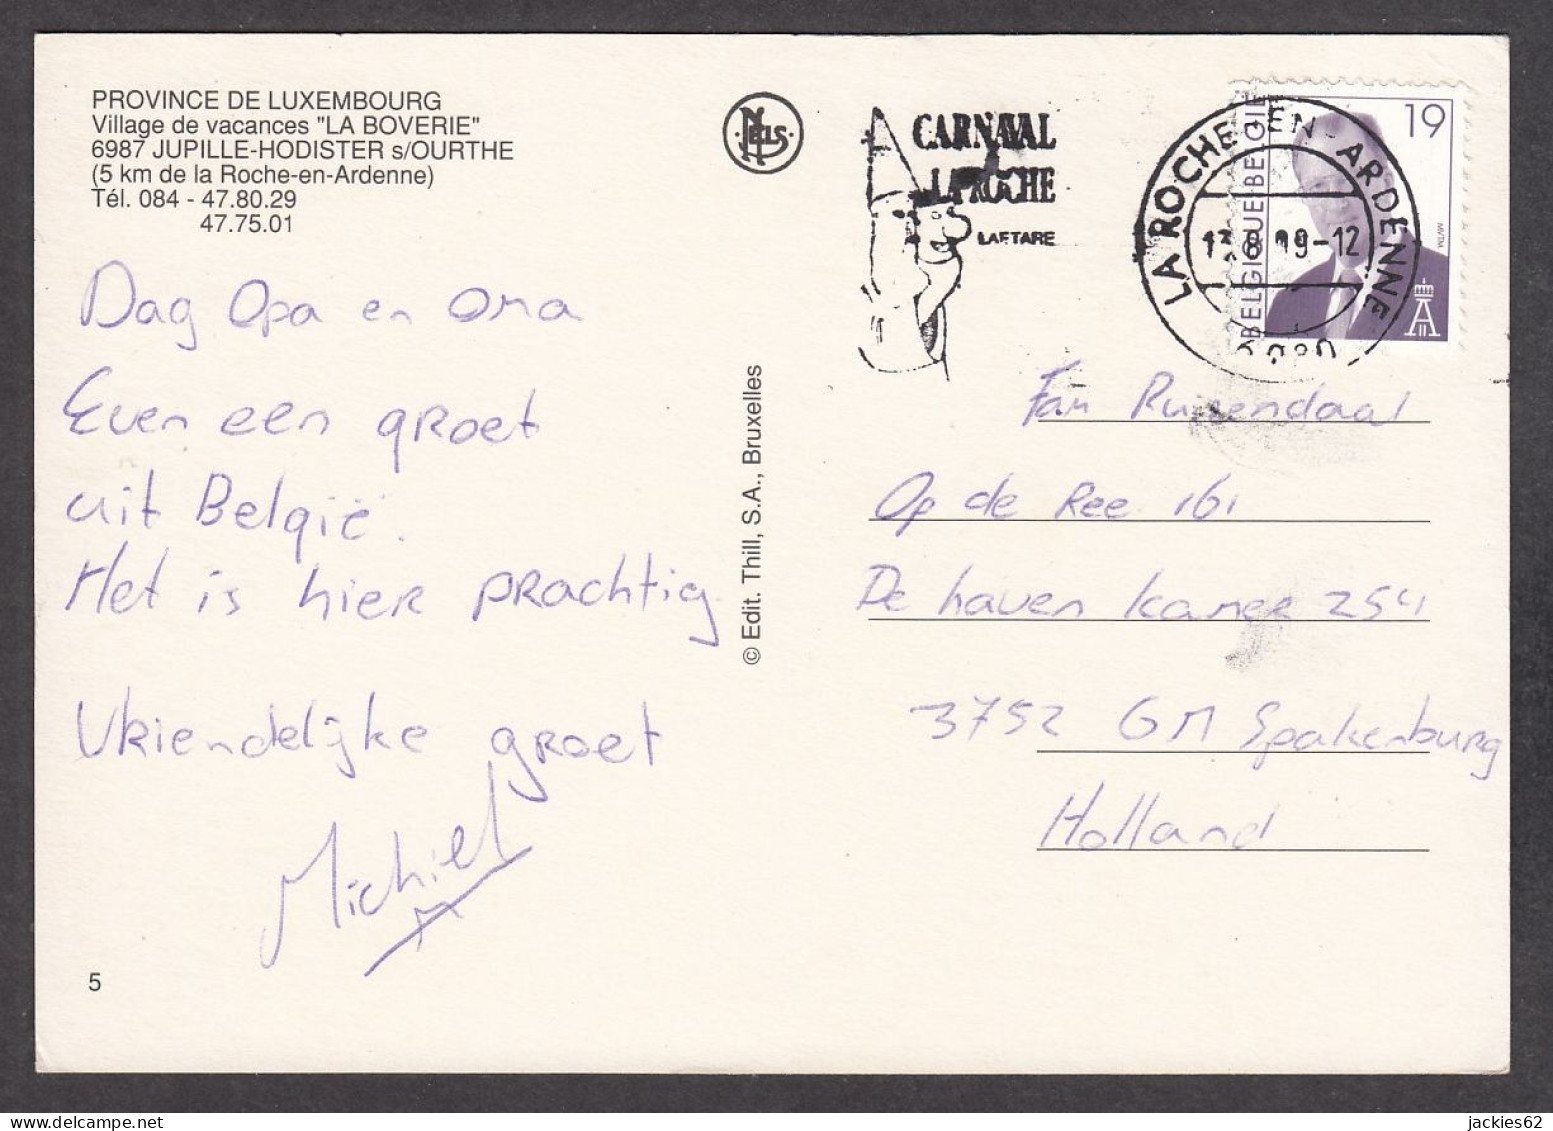 PROVINCE DE LUXEMBOURG
Village de vacances "LA BOVERIE"
6987 JUPILLE-HODISTER s/OURTHE
(5 km de la Roche-en-Ardenne)
Tél. 084 - 47.80.29
47.75.01
Dag Opa en oma
Even een groet
uit België.
Het is hier prachtig
Vriendelijke groet
Michiel
5
© Edit. Thill, S.A., Bruxelles
NELS
CARNAVAL
LA ROCHE
LAETARE
LA ROCHE-EN-ARDENNE
BELGIQUE-BELGIE
19
MVTM
Fam
Op de Ree 161
De haven kamer 254
3752 GM Spakenburg
Holland
jackies62